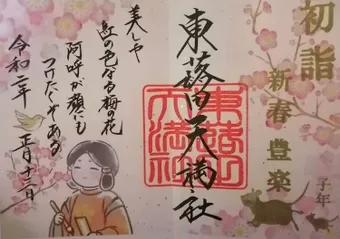 初詣
新春 豊楽
子年
東蕗田天満社
美しや
紅の色なる梅の花
阿呼が顔にも
つけたくぞある
令和二年 正月十三日